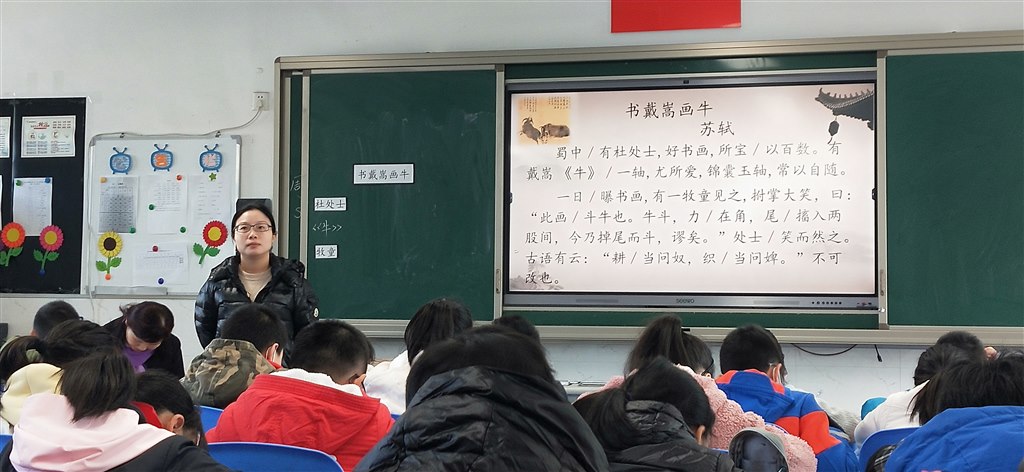 书戴嵩画牛
杜处士
《牛》
牧童
书戴嵩画牛
苏轼
蜀中/有杜处士,好书画,所宝/以百数。有
戴嵩《牛》/一轴,尤所爱,锦囊玉轴,常以自随。
一日/曝书画,有一牧童见之,拊掌大笑,曰:
“此画/斗牛也。牛斗,力/在角,尾/搐入两
股间,今乃掉尾而斗,谬矣。”处士/笑而然之。
古语有云:“耕/当问奴,织/当问婢。”不可
改也。
seewo